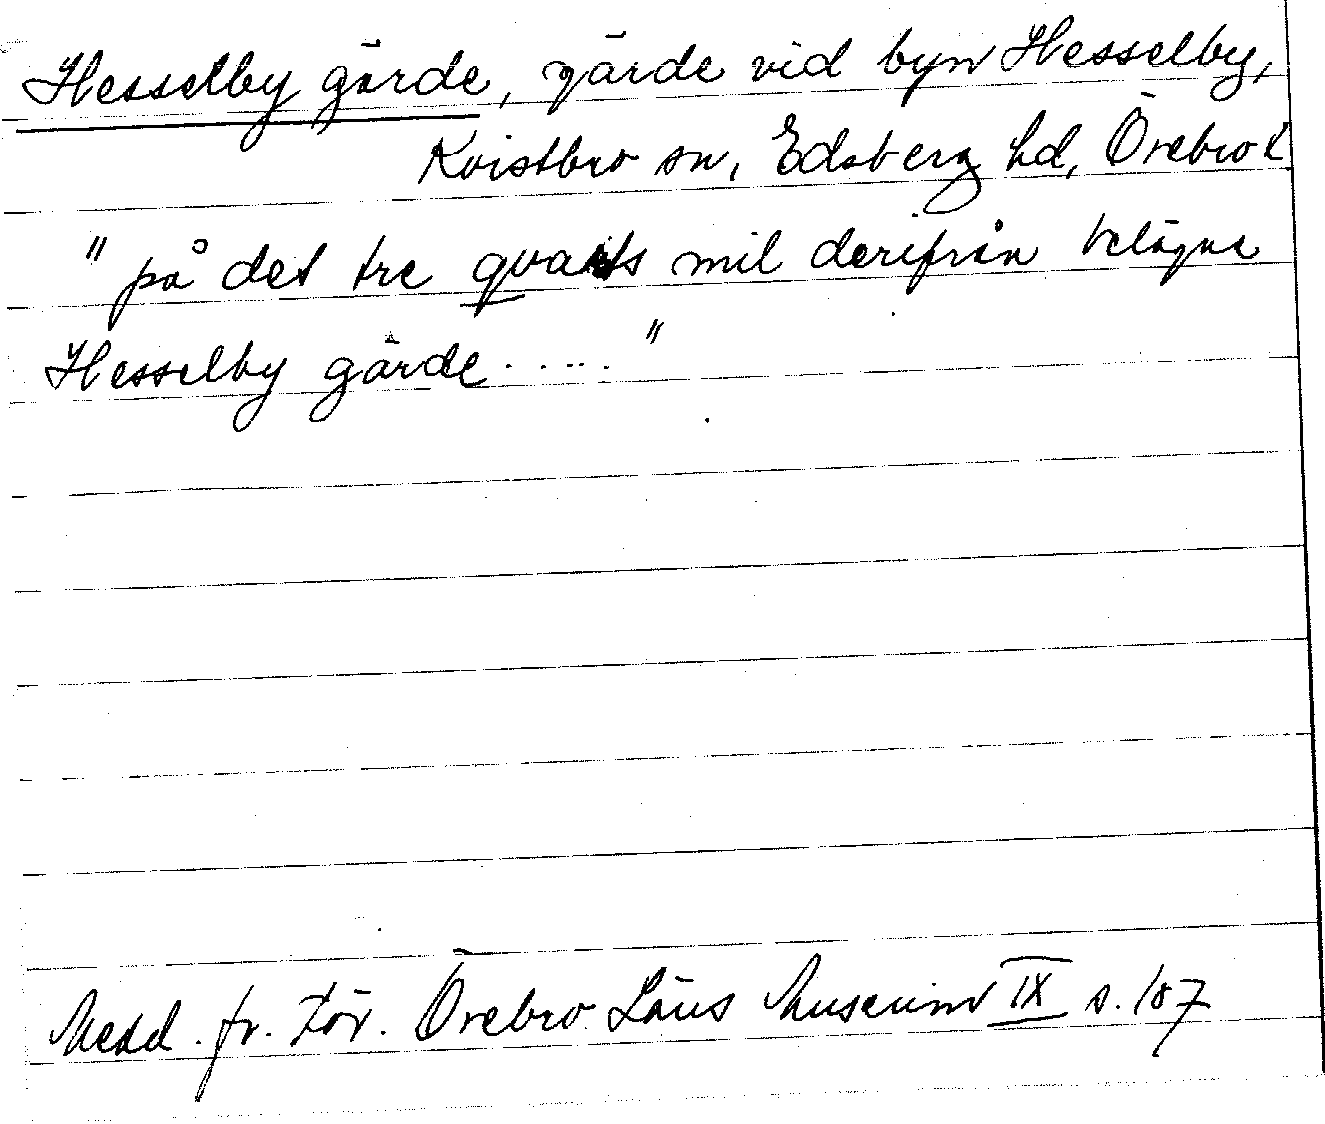 Hesselby gärde, gärde vid byn Hesselby,
Kvistbro sn, Edsberg hd, Örebro l.
"på det tre qvarts mil derifrån belägna
Hesselby gärde....."
Medd. fr. För. Örebro Läns Museum IX s. 187